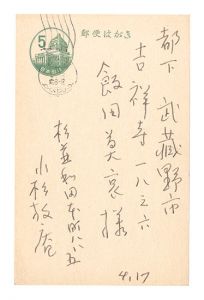 郵便はがき
5
都下 武蔵野市
吉祥寺一八三六
飯田莫哀様
杉並和田本町八六五
小杉放庵
4.17